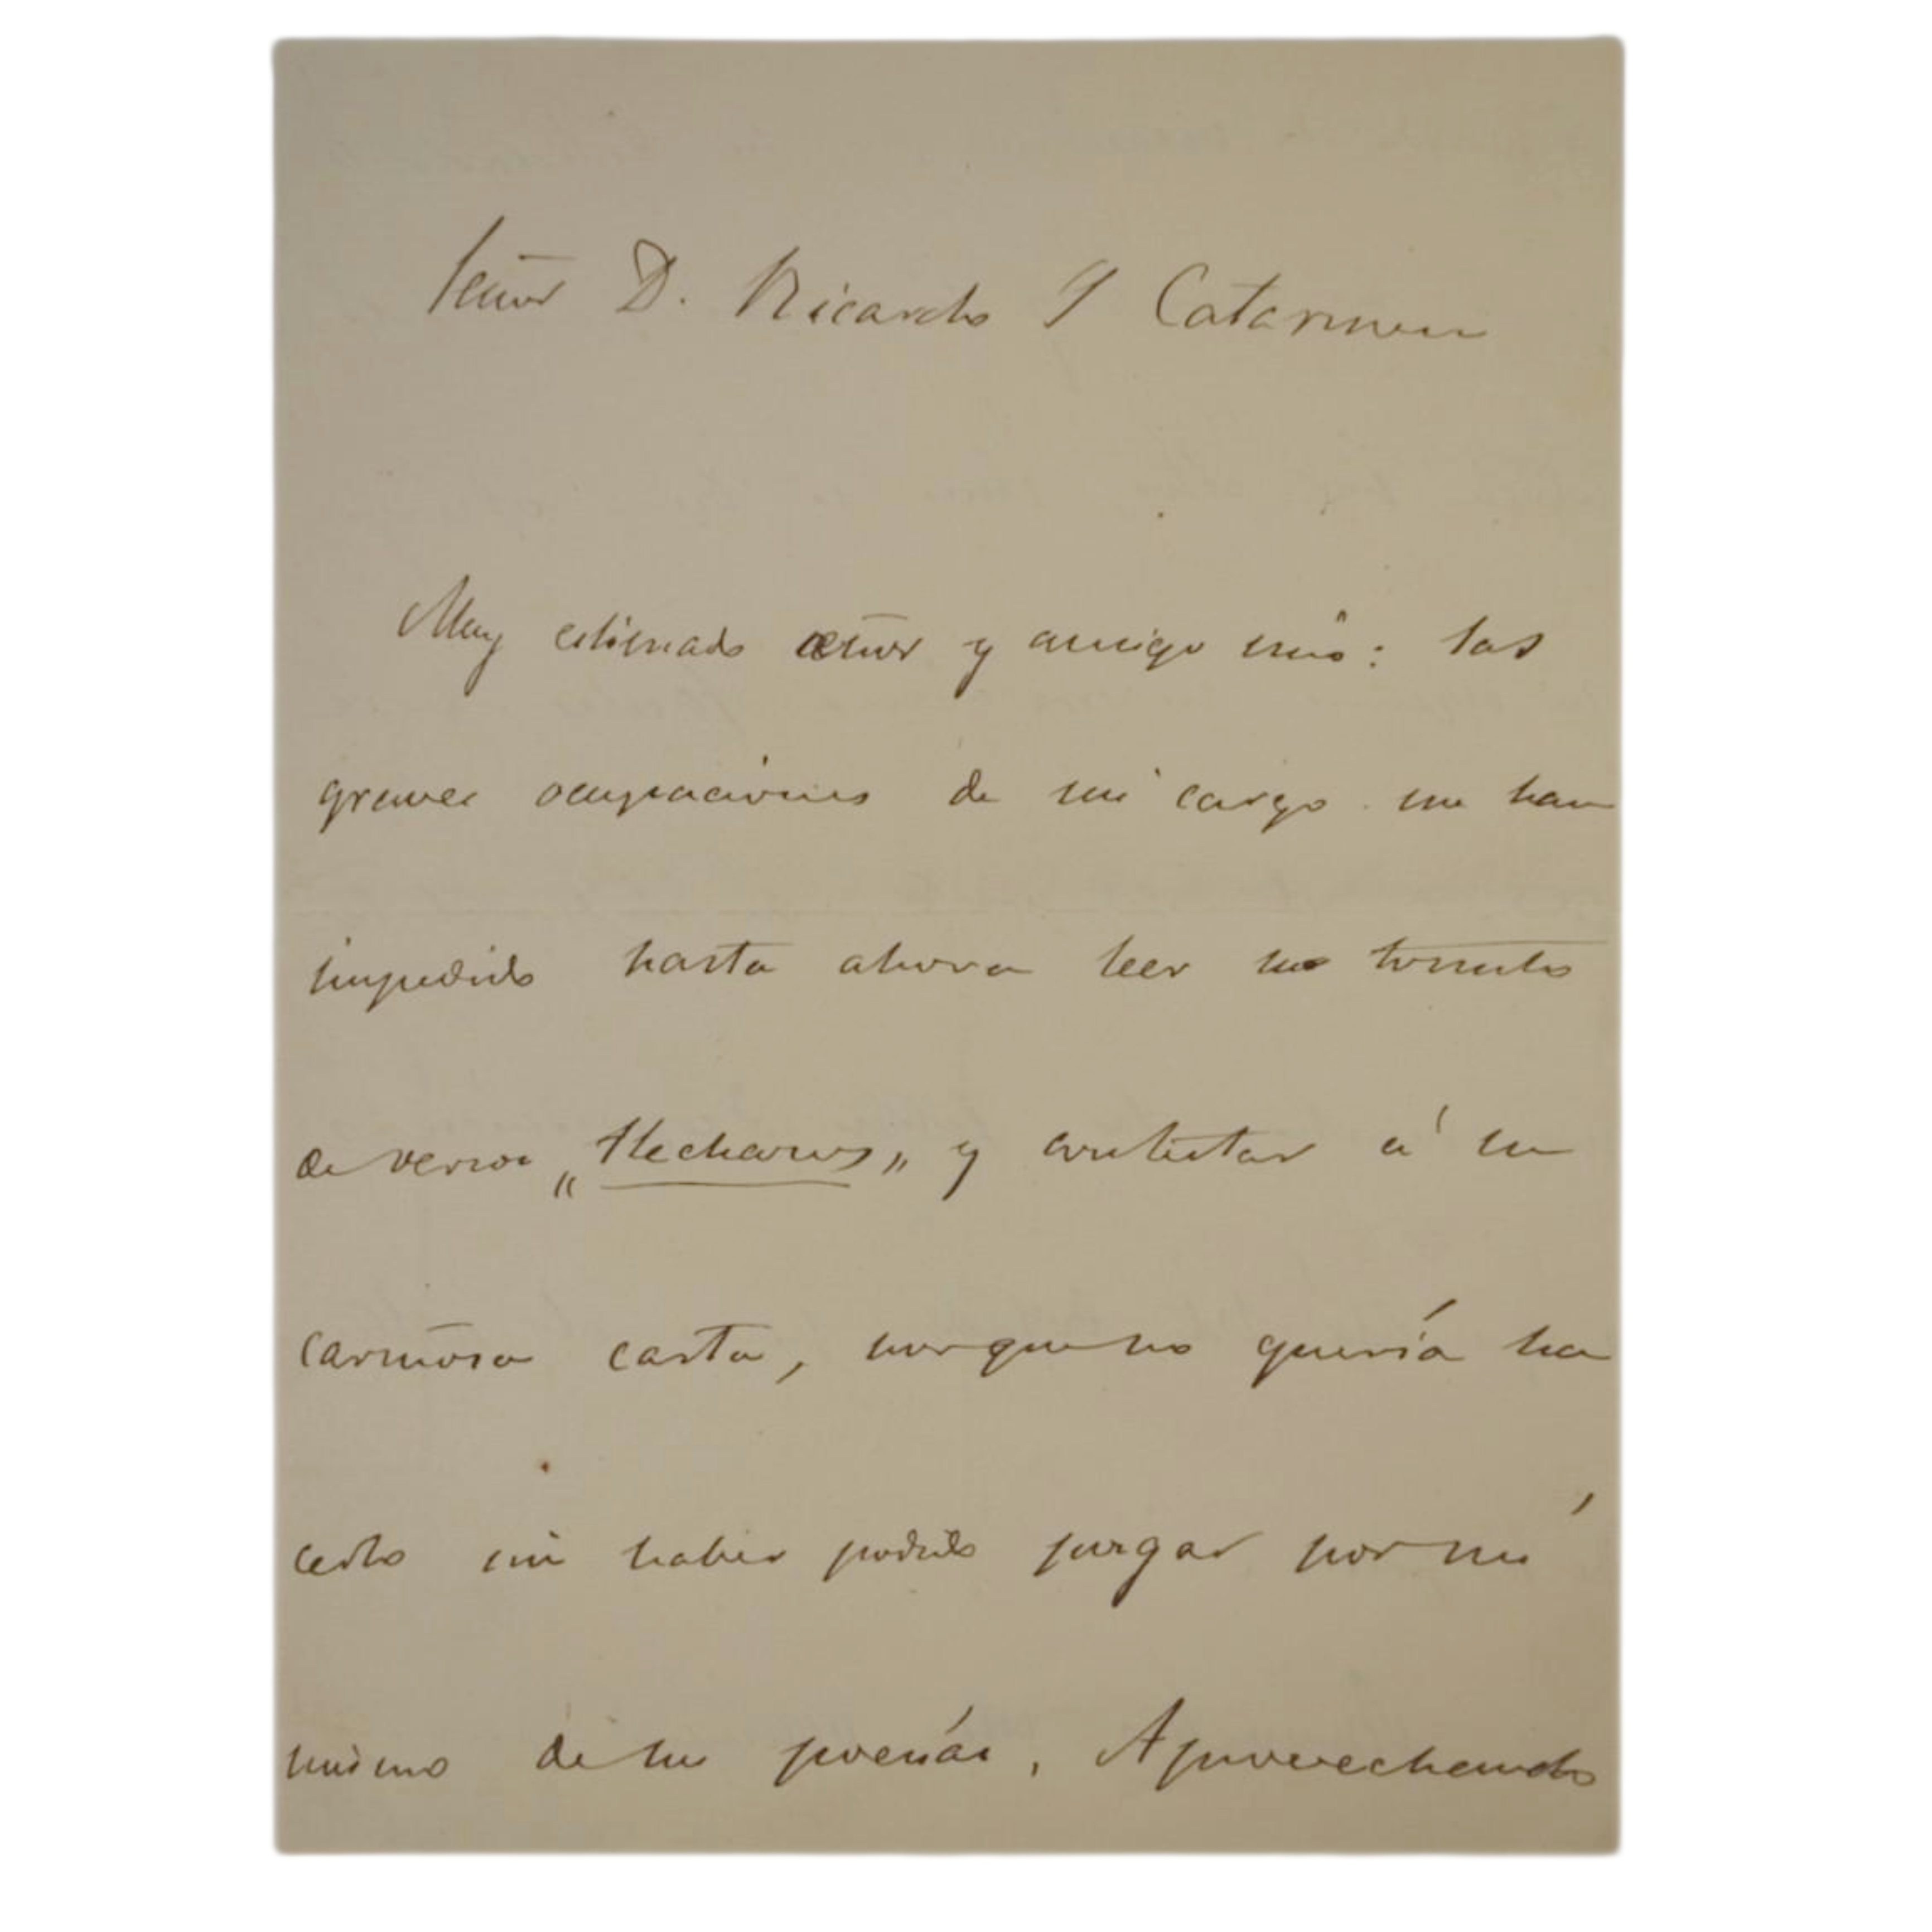 Señor D. Ricardo J Catarineu
Muy estimado señor y amigo mío: las
graves ocupaciones de mi cargo me han
impedido hasta ahora leer su tomito
de versos „Flechazos„ y contestar á su
cariñosa carta, porque no quería ha
cerlo sin haber podido juzgar por mí
mismo de sus poesías. Aprovechando